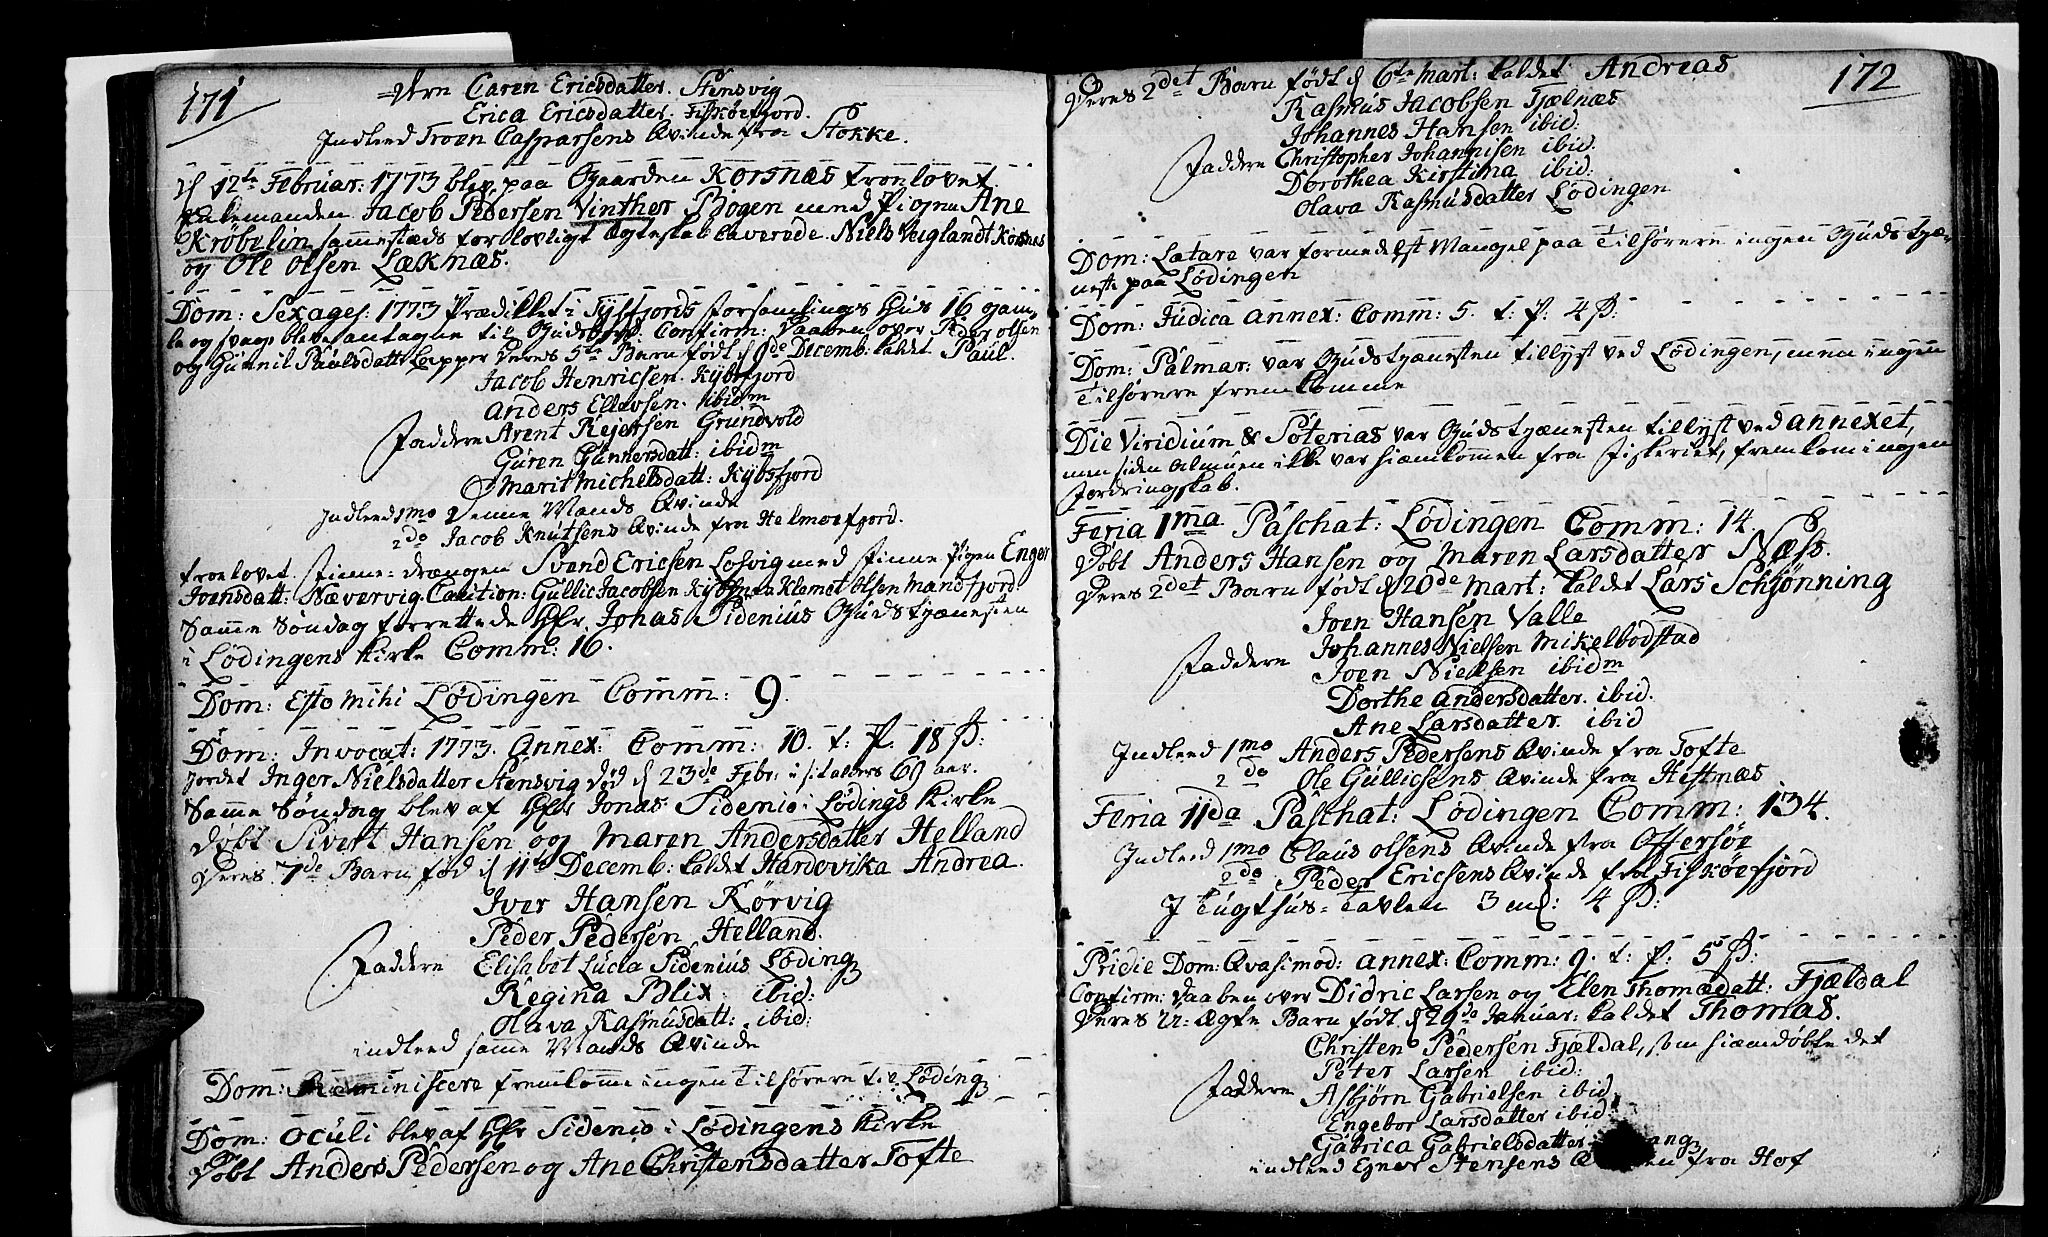 171
Caren Ericsdatter. Stensvig
Erica Ericsdatter. Fiskøefjord.
Indleed Troen Casparsens Qvinde fra Stokke.
d 12te Februar: 1773 blev paa Gaarden Korsnæs troelovet
Jacob Pedersen Vinther Bogen med Pigen Ane
Kröbelin sammestæds for lovligt Ægteskab caverede Niels Veiglandt Korsnæs
og Ole Olsen Læknæs.
Dom: Sexages: 1773 Prædiket i Tysfjords Forsamlings Huus 16 gam-
le og svage bleve antagne til Guds Bord. Confirm: Daaben over Peder Olsen
og Gunnil Paulsdatt: Lapper deres 5te Barn født d 9de Decemb. kaldet Paul.
Jacob Henricsen. Kiøbsfjord
Anders Ellevsen. ibidm
Faddere Arent Rejersen Grundvold
Guren Gunnersdatt: ibidm
Marit Michelsdatt: Kiøbsfjord
Indleed 1mo Denne Mands Qvinde
2do Jacob Knutsens Qvinde fra Helmoefjord.
troelovet Finne-drængen Svend Ericsen Losvig med Finne Pigen Enger
Joensdatt: Nævervig. Caution: Gullic Jacobsen Kiøbsnæs Klemet Olsen Mandfjord.
Samme Søndag forrettede Hr. Jonas Sidenius Gudstjænesten
i Lødingens Kirke Comm: 16.
Dom: Esto Mihi Lødingen Comm: 9.
Dom: Invocat: 1773. Annex: Comm: 10. t: p. 18 ß:
jordet Inger Nielsdatter Stensvig død d 23de Febr: i sit alders 69 aar.
Samme Søndag blev af Hr Jonas Sidenio i Lødings Kirke
døbt Sivert Hansen og Maren Andersdatter Helland
Deres 7de Barn fød d 11te Decemb: kaldet Handvika Andrea.
Iver Hansen Rørvig
Peder Pedersen Helland.
Faddere Elisabet Lucia Sidenius Løding
Regina Blix ibid:
Olava Rasmusdatt: ibid:
indleed samme Mands Qvinde
Dom: Reminiscere fremkomme ingen Tilhørere til Løding
Dom: Oculi blev af Hr Sidenio i Lødingens Kirke
Døbt Anders Pedersen og Ane Christensdatter Tofte
172
Deres 2det Barn født d 6te Mart: kaldet Andreas
Rasmus Jacobsen Fjælnæs
Johannes Hansen ibid:
Faddere Christopher Johannisen ibid.
Dorothea Kirstina ibid:
Olava Rasmusdatter Lødingen
Dom: Lætare var formedelst Mangel paa Tilhørere ingen Gudstjæ-
neste paa Lødingen
Dom: Judica Annex: Comm: 5. t: p: 4 ß:
Dom: Palmar: var Gudstjænesten tillyst ved Lødingen, men ingen
Tilhørere fremkomme
Die Viridium & Soterias var Gudstjænesten tillyst ved Annexet,
men siden Almuen ikke var hiemkommen fra Fiskeriet, fremkom ingen
Fordringskab.
Feria 1ma Paschat: Lødingen Comm: 14.
Døbt Anders Hansen og Maren Larsdatter Næss.
Deres 2det Barn født d 20de Mart: kaldet Lars Schjønning
Joen Hansen Valle
Johannes Nielsen Mikelbodstad
Faddere Joen Nielsen ibidm
Dorthe Andersdatter. ibid.
Ane Larsdatter ibid
Indleed 1mo Anders Pedersens Qvinde fra Tofte
2do Ole Gullicsens Qvinde fra Hestnæs
Feria 11da Paschat: Lødingen Comm: 134.
Indleed 1mo Claus Olsens Qvinde fra Offersøe
2do Peder Ericsens Qvinde fra Fiskøefjord
I Tugthus-Tavlen 3 m: 4 ß:
Pridie Dom: Qvasimod: Annex: Comm: 9. t: p: 5 ß:
Confirm: Daaben over Didric Larsen og Elen Thomædatt: Fjældal
Deres Ægte Barn født d 29de Januar: kaldet Thomas.
Christen Pedersen Fjældal, som hiemdøbte det
Peter Larsen ibid:
Faddere Asbjørn Gabrielsen ibid
Engebor Larsdatter ibid:
Gabrica Gabrielsdatter
indleed Egner Stensens fra Hof